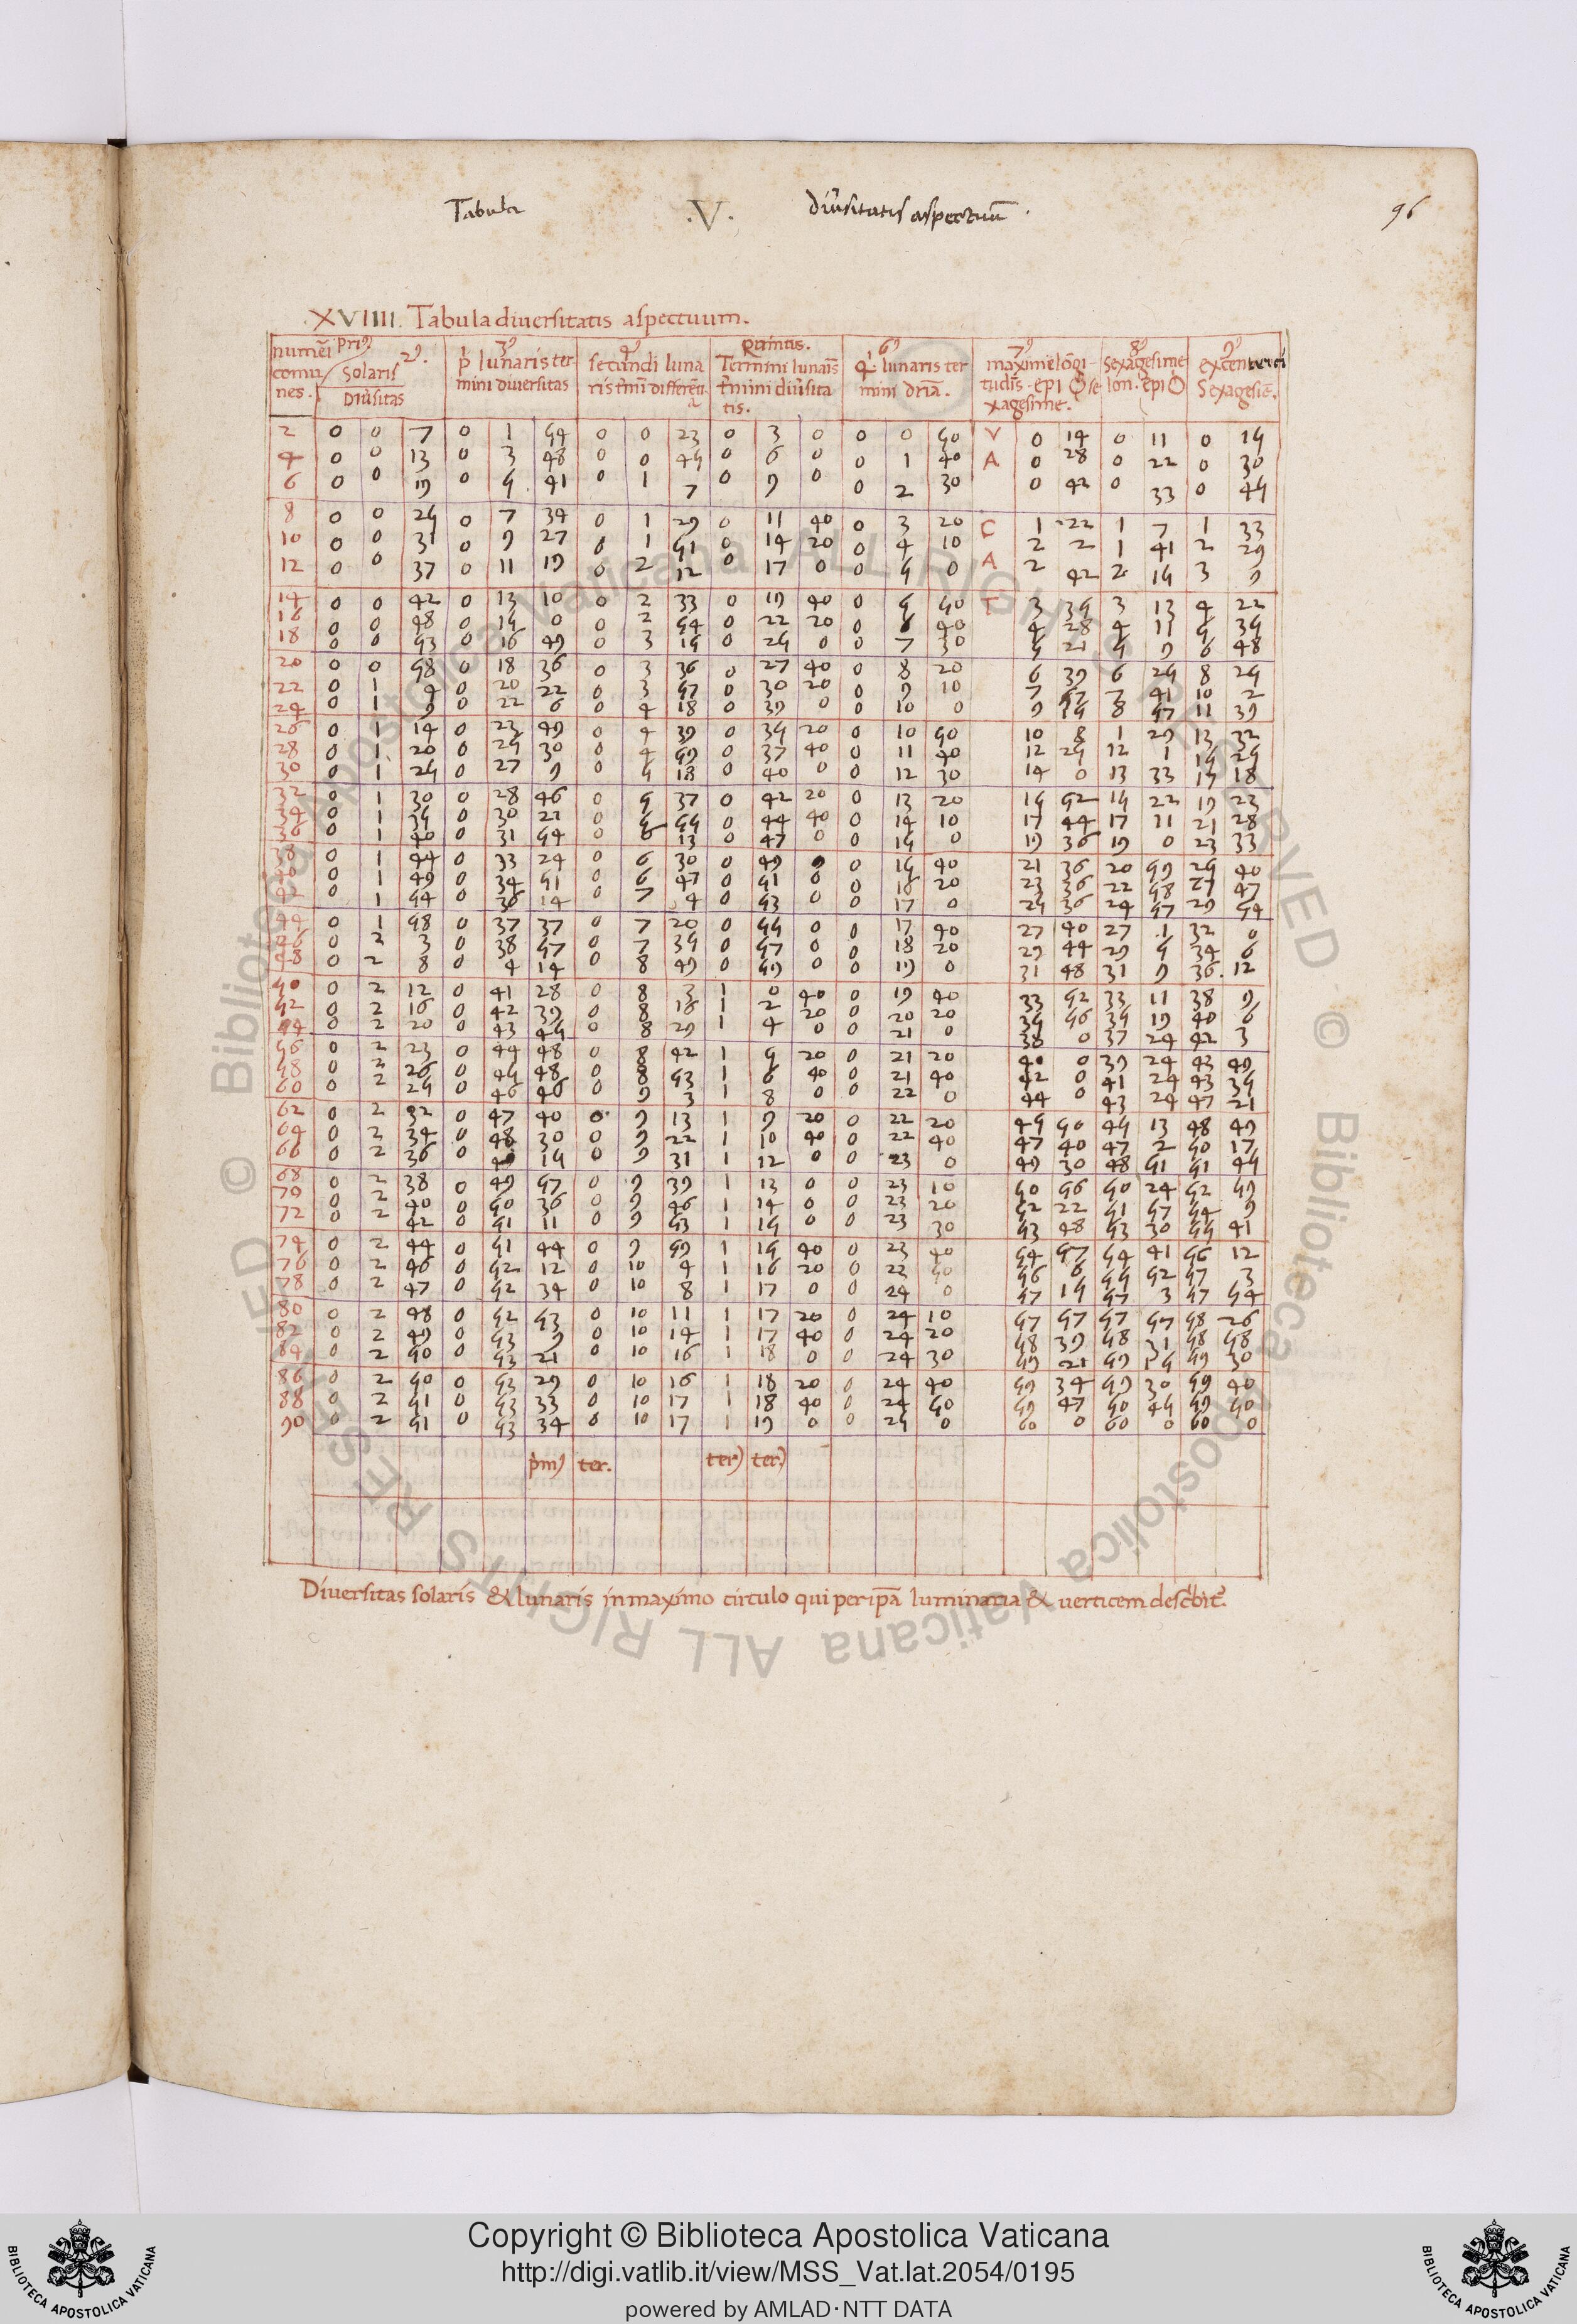 Tabula .V. diũsitatis aspectuũ. 96
XVIIII. Tabula diuersitatis aspectuum.
Solaris
Diũsitas
2 0 0 7 0 1 54 0 0 23 0 3 0 0 0 50 V 0 14 0 11 0 15
4 0 0 13 0 3 48 0 0 45 0 6 0 0 1 40 A 0 28 0 22 0 30
6 0 0 19 0 5 41 0 1 7 0 9 0 0 2 30 0 42 0 33 0 45
8 0 0 25 0 7 34 0 1 29 0 11 40 0 3 20 C 1 22 1 7 1 33
10 0 0 31 0 9 27 0 1 51 0 14 20 0 4 10 A 2 2 1 41 2 29
12 0 0 37 0 11 19 0 2 12 0 17 0 0 5 0 2 42 2 15 3 9
14 0 0 42 0 13 10 0 2 33 0 19 40 0 5 50 T 3 35 3 13 4 22
16 0 0 48 0 15 0 0 2 54 0 22 20 0 6 40 4 28 4 11 5 35
18 0 0 53 0 16 49 0 3 15 0 25 0 0 7 30 5 21 5 9 6 48
20 0 0 58 0 18 36 0 3 36 0 27 40 0 8 20 6 39 6 25 8 25
22 0 1 4 0 20 22 0 3 57 0 30 20 0 9 10 7 57 7 41 10 2
24 0 1 9 0 22 6 0 4 18 0 39 0 0 10 0 9 15 8 57 11 39
26 0 1 14 0 23 49 0 4 39 0 35 20 0 10 50 10 8 1 29 13 32
28 0 1 20 0 25 30 0 4 59 0 37 40 0 11 40 12 25 12 1 15 25
30 0 1 25 0 27 9 0 5 18 0 40 0 0 12 30 14 0 13 33 17 18
32 0 1 30 0 28 46 0 5 37 0 42 20 0 13 20 15 52 15 22 19 23
34 0 1 35 0 30 21 0 5 55 0 44 40 0 14 10 17 44 17 11 21 28
36 0 1 40 0 31 54 0 6 13 0 47 0 0 15 0 19 36 19 0 23 33
38 0 1 44 0 33 24 0 6 30 0 49 0 0 15 40 21 36 20 59 25 40
40 0 1 49 0 34 51 0 6 47 0 51 0 0 16 20 23 36 22 58 27 47
42 0 1 54 0 36 14 0 7 4 0 53 0 0 17 0 25 36 24 57 29 54
44 0 1 58 0 37 37 0 7 20 0 55 0 0 17 40 27 40 27 1 32 0
46 0 2 3 0 38 57 0 7 35 0 57 0 0 18 20 29 44 29 5 34 6
48 0 2 8 0 4 14 0 8 49 0 59 0 0 19 0 31 48 31 9 36 12
50 0 2 12 0 41 28 0 8 3 1 0 40 0 19 40 33 52 33 11 38 9
52 0 2 16 0 42 39 0 8 16 1 2 20 0 20 20 35 56 35 19 40 6
54 0 2 20 0 43 45 0 8 29 1 4 0 0 21 0 38 0 37 24 42 3
56 0 2 23 0 44 48 0 8 42 1 5 20 0 21 20 40 0 39 24 43 49
58 0 2 26 0 45 48 0 8 53 1 6 40 0 21 40 42 0 41 24 43 35
60 0 2 29 0 46 46 0 9 3 1 8 0 0 22 0 44 0 43 24 47 21
62 0 2 32 0 47 40 0 9 13 1 9 20 0 22 20 45 50 45 13 48 49
64 0 2 34 0 48 30 0 9 22 1 10 40 0 22 40 47 40 47 2 50 17
66 0 2 36 0 49 15 0 9 31 1 12 0 0 23 0 49 30 48 51 51 45
68 0 2 38 0 49 57 0 9 39 1 13 0 0 23 10 50 56 50 24 52 59
70 0 2 40 0 50 36 0 9 46 1 14 0 0 23 20 52 22 51 57 54 9
72 0 2 42 0 51 11 0 9 53 1 15 0 0 23 30 53 48 53 30 55 41
74 0 2 44 0 51 44 0 9 59 1 15 40 0 23 40 54 57 54 41 56 12
76 0 2 46 0 52 12 0 10 4 1 16 20 0 23 50 56 6 55 52 57 3
78 0 2 47 0 52 34 0 10 8 1 17 0 0 24 0 57 15 57 3 57 54
80 0 2 48 0 52 53 0 10 11 1 17 20 0 24 10 57 57 57 57 58 26
82 0 2 49 0 53 9 0 10 14 1 17 40 0 24 20 58 39 58 31 58 58
84 0 2 50 0 53 21 0 10 16 1 18 0 0 24 30 59 21 59 15 59 30
86 0 2 50 0 53 29 0 10 16 1 18 20 0 24 40 59 34 59 30 59 40
88 0 2 51 0 53 33 0 10 17 1 18 40 0 24 50 59 47 50 45 59 50
90 0 2 51 0 53 34 0 10 17 1 19 0 0 25 0 60 0 60 0 60 0
ter. ter) ter)
Diuersitas solaris & lunaris in maximo circulo qui per ipã luminaria & uerticem descbit̃.
Copyright © Biblioteca Apostolica Vaticana
http://digi.vatlib.it/view/MSS_Vat.lat.2054/0195
powered by AMLAD·NTT DATA
BIBLIOTECA APOSTOLICA VATICANA
BIBLIOTECA APOSTOLICA VATICANA